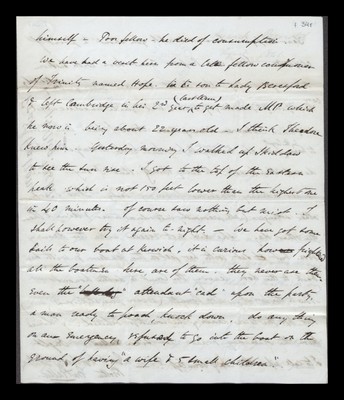 himself – Poor fellow he died of consumption
We have had a visit here from a fellow
of Trinity named Hope. is to Lady Beresford
& left Cambridge in his 2nd year, (last term) to get made MP which
he now is being about 22 years old – I think Theodore
knew him – Yesterday morning I walked up Skiddaw
to see the sun rise. I got to the top of the Eastern
peak which is not 150 feet lower than the highest one
in 40 minutes. Of course saw nothing but mist. I
shall however try it again to-night – We have got some
sails to our boat at Keswick. it is curious how frightened
all the boatmen here, are of them. they never use them
Even the attendant 'cad' upon the party,
a man ready to poach knock down, do any thing
on an Emergency refused to go into the boat on the
ground of having "a wife & 5 small children"